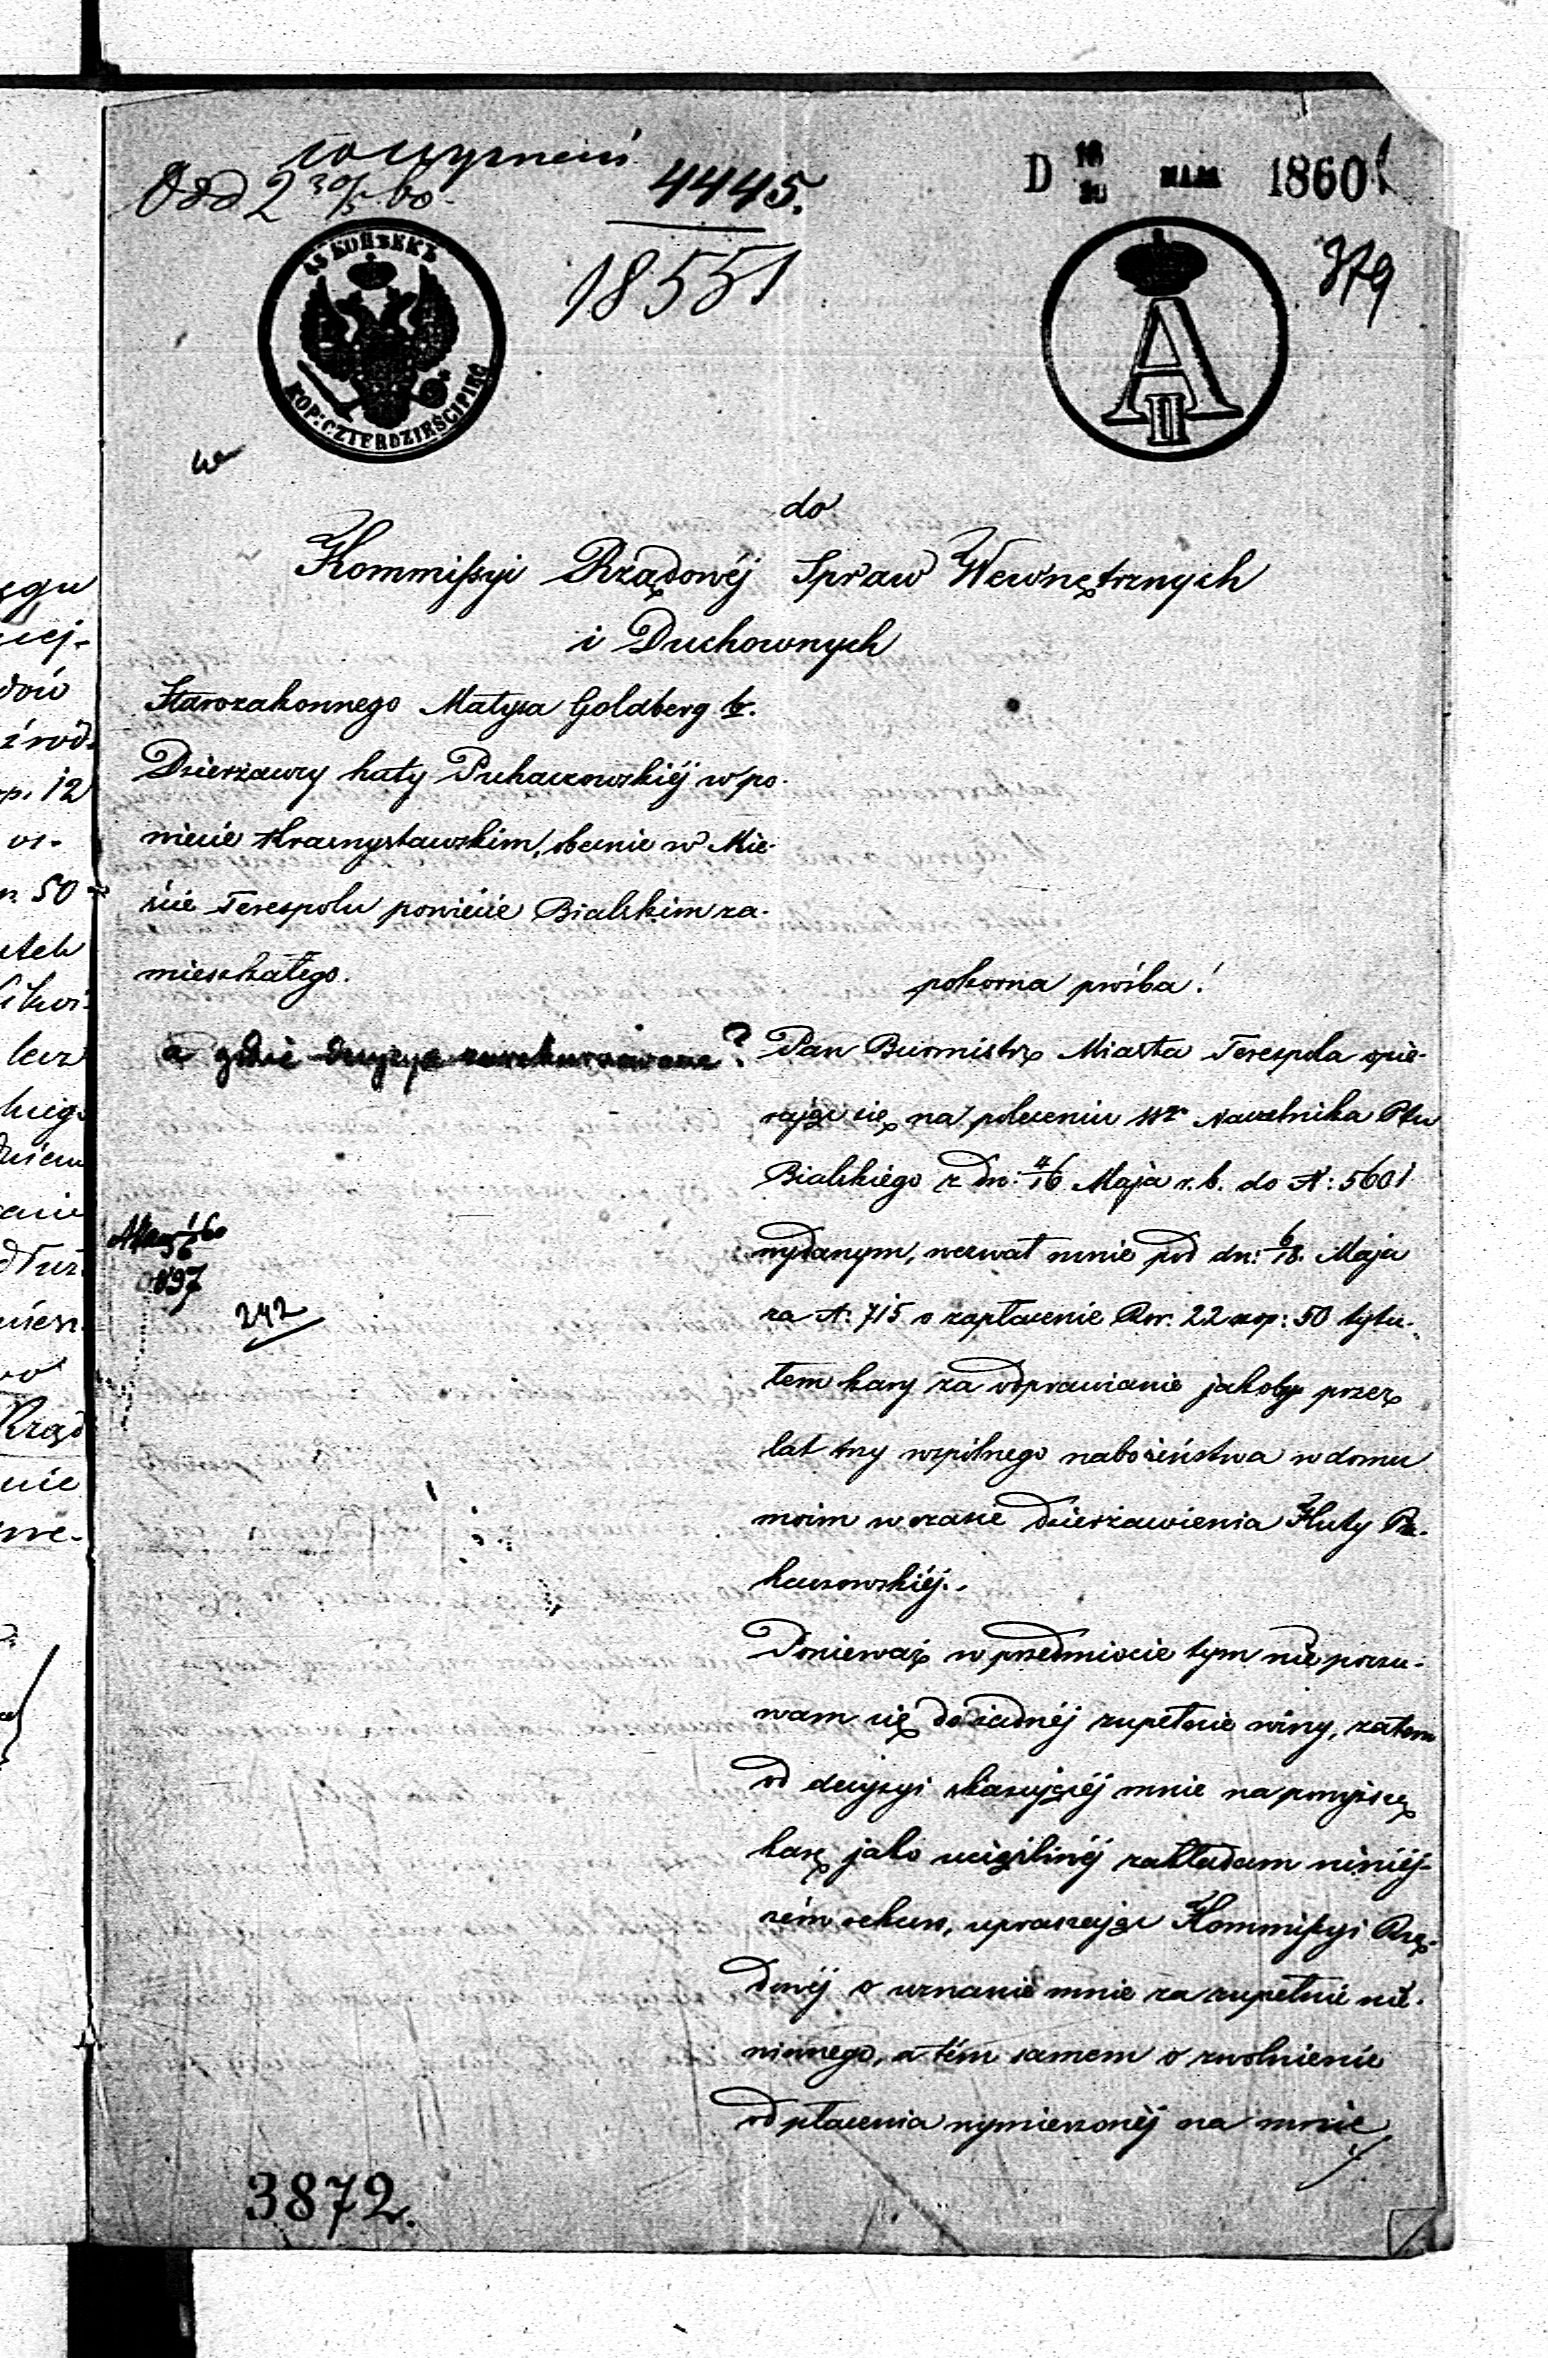 wczyzneń
Odd 2 30/5 60.
4445.
18551
D 18 MAJA 1860
30
379
45 KOПѢЕКЪ
KOP: CZTERDZIEŚCI PIĘĆ
A II
do
Kommißyi Rządowéj Spraw Wewnętrznych
i Duchownych
Starozakonnego Matysa Goldberg b.
Dzierżawcy huty Puhaczowskiéj w po-
wiecie Krasnystawskim, obecnie w Mie-
ście Terespolu powiecie Bialskim za-
mieszkałego.
pokorna prośba!
a gdzie decyzya zarekursowana?
Pan Burmistrz Miasta Terespola opie-
rając się na poleceniu Wo Naczelnika Ptu
Bialskiego z dn: 4/16 Maja r. b. do N: 5601
wydanym, wezwał mnie pod dn: 6/18. Maja
za N: 715 o zapłacenie Rsr. 22 kop: 50 tytu-
łem kary za odprawianie jakoby przez
lat trzy wspólnego nabożeństwa w domu
moim w czasie dzierżawienia Huty Pu-
haczowskiéj.
Ponieważ w przedmiocie tym nie poczu-
wam się do żadnéj zupełnie winy, zatem
od decyzyi skazującéj mnie na powyższą
karę jako uciążliwéj zakładam niniéj-
szém rekurs, upraszając Kommißyi Rzą-
dowéj o uznanie mnie za zupełnie nie-
winnego, a tém samem o zwolnienie
od płacenia wymierzonéj na mnie
897
242
3872.